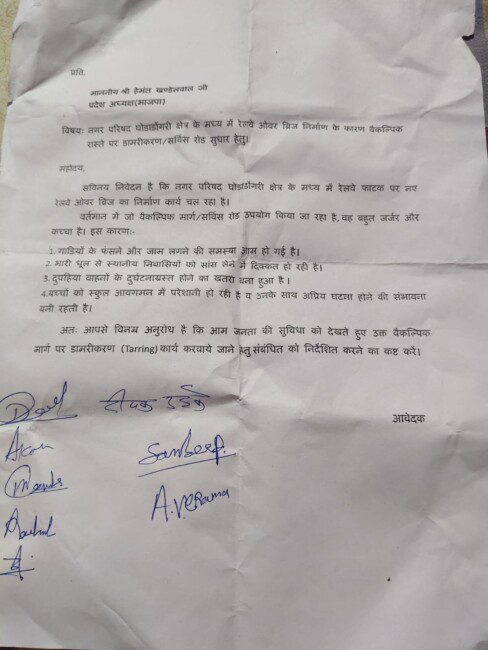 प्रति,
माननीय श्री हेमंत खण्डेलवाल जी
प्रदेश अध्यक्ष(भाजपा)
विषयः नगर परिषद घोडाडोंगरी क्षेत्र के मध्य में रेलवे ओवर ब्रिज निर्माण के कारण वैकल्पिक
रास्ते पर डामरीकरण/सर्विस रोड सुधार हेतु।
महोदय,
सविनय निवेदन है कि नगर परिषद घोडाडोंगरी क्षेत्र के मध्य में रेलवे फाटक पर नए
रेलवे ओवर ब्रिज का निर्माण कार्य चल रहा है।
वर्तमान में जो वैकल्पिक मार्ग/सर्विस रोड उपयोग किया जा रहा है, वह बहुत जर्जर और
कच्चा है। इस कारण:-
1. गाडियों के फंसने और जाम लगने की समस्या आम हो गई है।
2. भारी धूल से स्थानीय निवासियों को सांस लेने में दिक्कत हो रही है।
3. दुपहिया वाहनों के दुर्घटनाग्रस्त होने का खतरा बना हुआ है।
4.बच्चों को स्कूल आवागमन में परेशानी हो रही है व उनके साथ अप्रिय घटना होने की संभावना
बनी रहती है।
अतः आपसे विनम्र अनुरोध है कि आम जनता की सुविधा को देखते हुए उक्त वैकल्पिक
मार्ग पर डामरीकरण (Tarring) कार्य करवाये जाने हेतु संबंधित को निर्देशित करने का कष्ट करें।
दीपक उइके
आवेदक
Sandeep